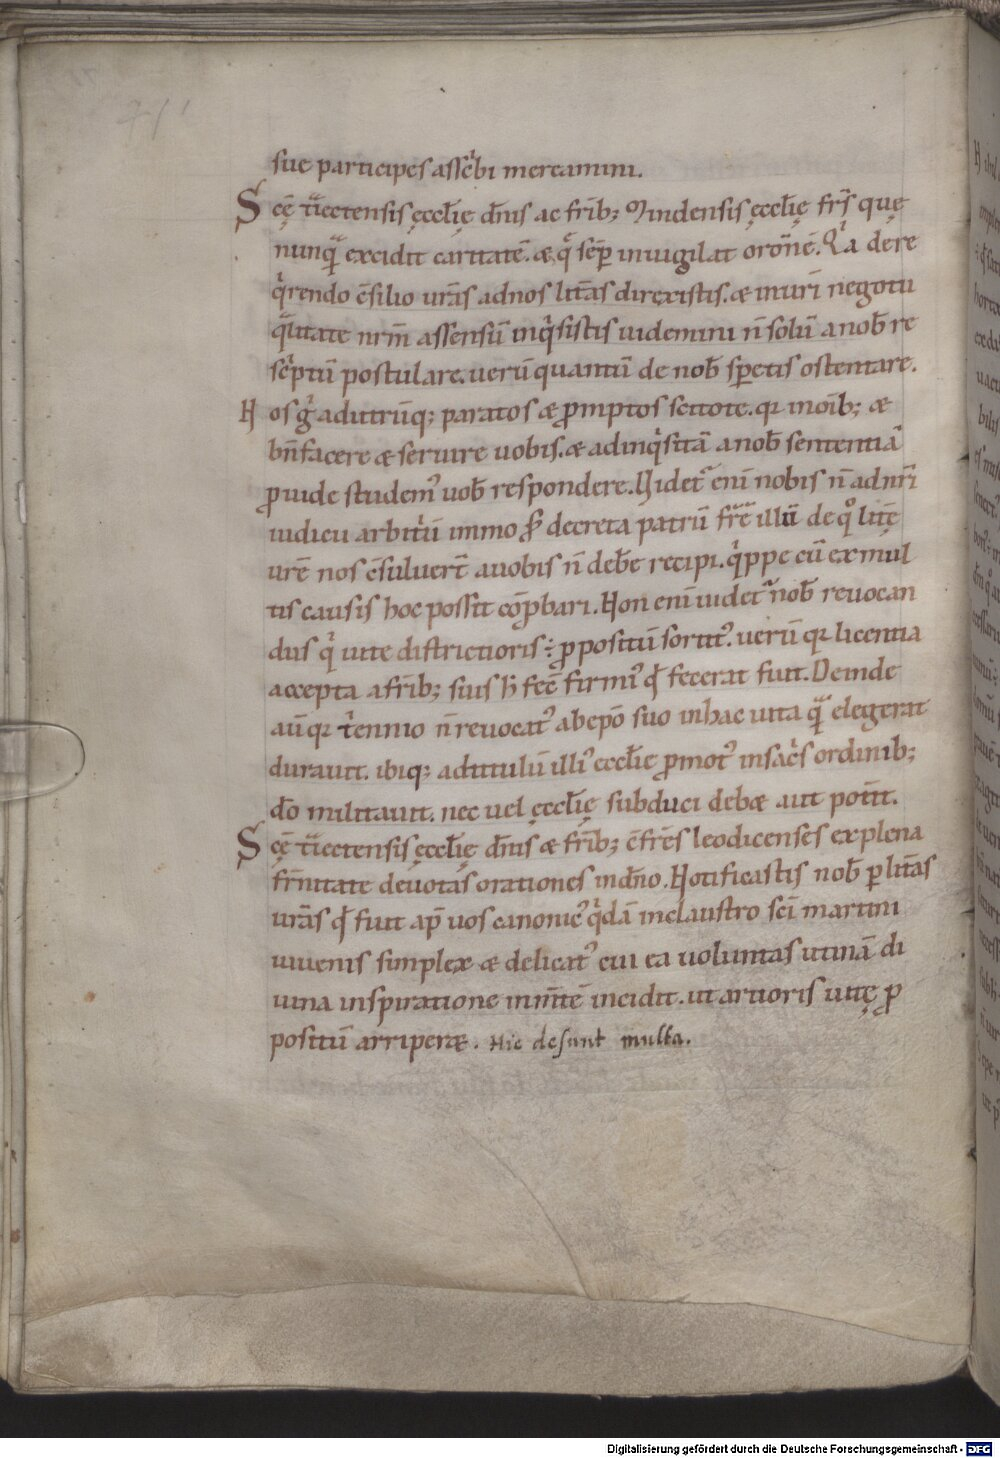 71'
sue participes asscͥbi mereamini.
Scę̄ tͣiectensis ęccłię dn̄is ac frīb; Mindensis ęccłię frs̄ quę
nunqͣ excidit caritatē. & qͣ semp̄ inuigilat oronē. Qͥa de re
qͥrendo c̄silio urās ad nos litās direxistis. & in uri negotii
qͣlitate nrm̄ assensū inqͥsistis uidemini n̄ solū a nob̄ re
scͥptū postulare. uerū quantū de nob̄ speretis ostentare.
Nos gͥ ad utrūq; paratos & ꝓmptos scitote. qꝛ in oīb; &
bn̄facere & seruire uobis. & ad inqͥsitā a nob̄ sententiā
ꝓuide studemꝰ uob̄ respondere. Videt᷑ enī nobis n̄ ad nrī
iudicii arbitͥū immo ꝓ decreta patrū frēm illū de qͦ litę̄
urē nos c̄suluert̄ a uobis n̄ deb̄e recipi. qͥppe cū ex mul
tis causis hoc possit cōꝓbari. Non enī uidet᷑ nob̄ reuocan
dus qͥ uite districtioris ꝓpositū sortitꝰ. uerū qꝛ licentia
accepta a frīb; suis h̄ fec̄ firmiꝰ qđ fecerat fuit. Deinde
aū qꝛ tͥennio n̄ reuocatꝰ ab epō suo in hac uita qͣ elegerat
durauit. ibiq; ad titulū illiꝰ ęccłie ꝓmotꝰ in sacͥs ordinib;
dō militauit. nec uel ęccłię subduci deb& aut potīt.
Scę̄ tͣiectensis ęccłię dn̄is & frīb; c̄frēs leodicenses ex plena
frn̄itate deuotas orationes in dn̄o. Notificastis nob̄ ꝑ litās
urās qđ fuit ap̄ uos canonicꝰ qͥdā in claustro scī martini
iuuenis simplex & delicatꝰ cui ea uoluntas utinā di
uina inspiratione in mn̄tē incidit. ut artioris uitę ꝓ
positū arriper&. Hic desunt multa.
Digitalisierung gefördert durch die Deutsche Forschungsgemeinschaft - DFG